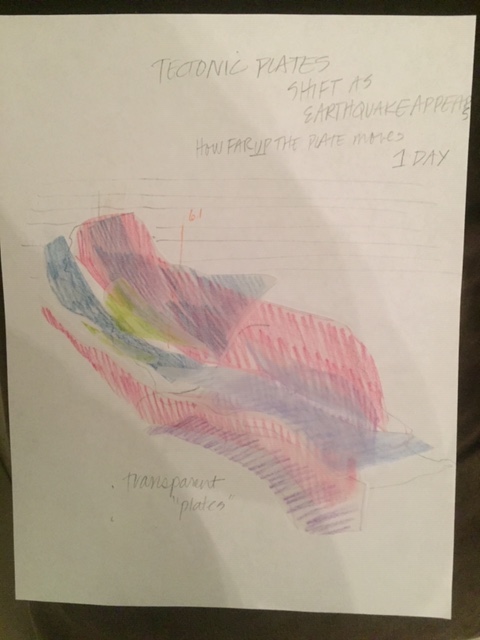 TECTONIC PLATES
SHIFT AS
EARTHQUAKE APPEARS
HOW FAR UP THE PLATE MOVES
1 DAY
6.1
transparent
"plates"